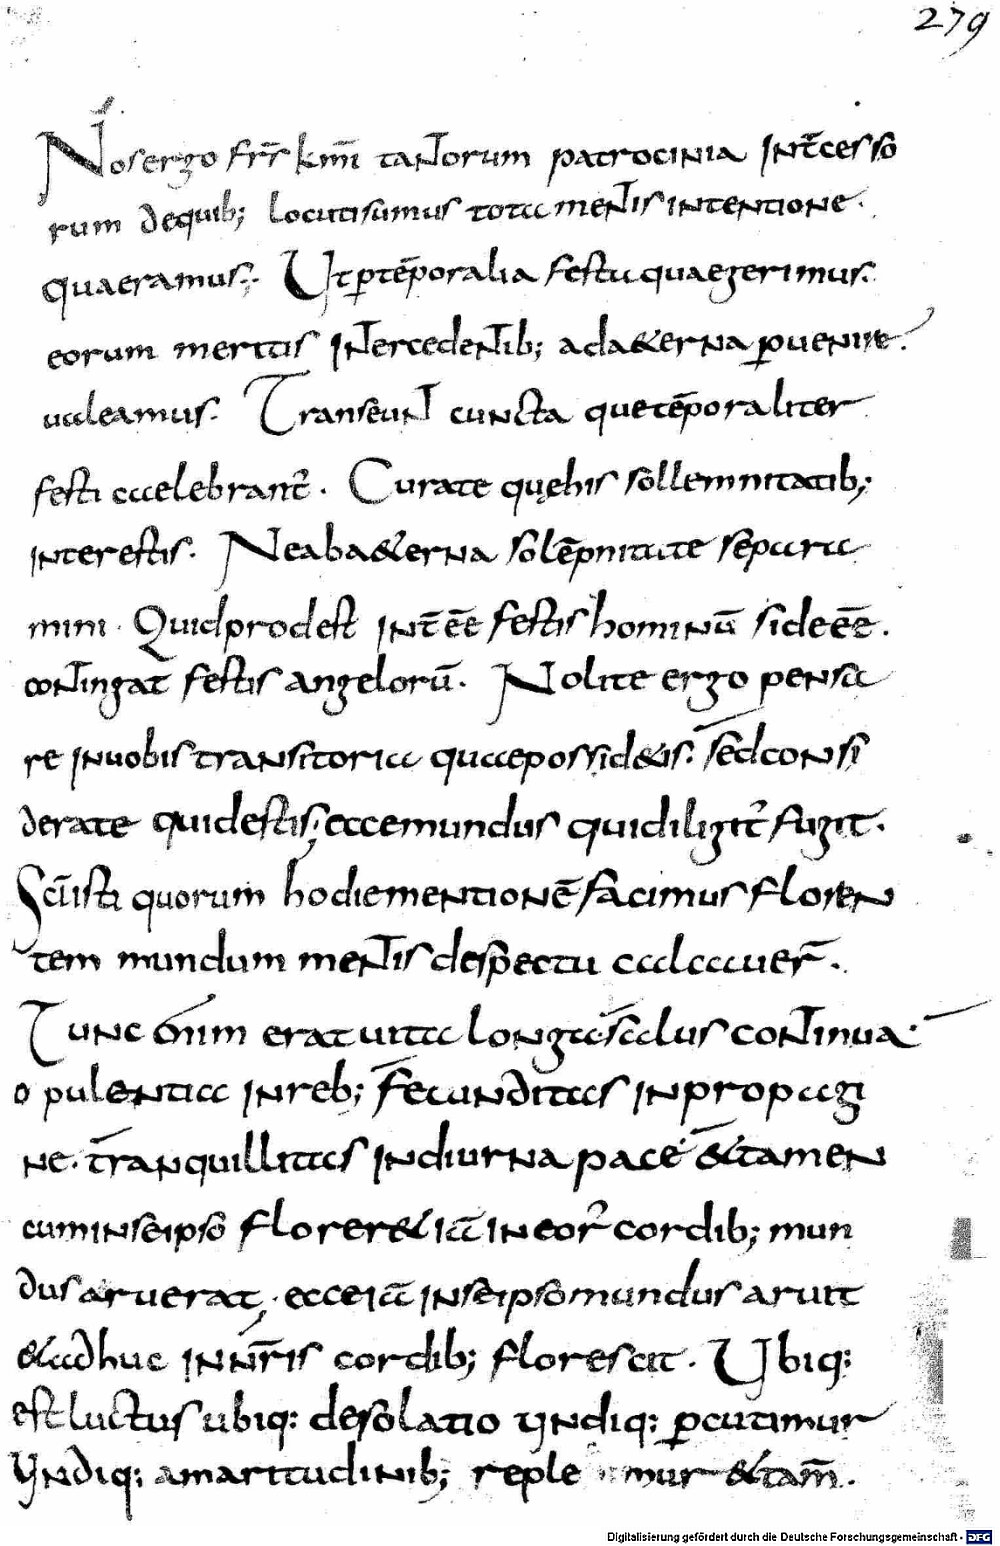 279
Nos ergo frs̄ km̄i tantorum patrocinia int̄cesso
rum de quib; locuti sumus tota mentis intentione.
quaeramus. Ut p̲ tēporalia festa quae gerimus.
eorum meritis intercedentib; ad a&erna p̲uenire.
ualeamus. Transeunt cuncta que tēporaliter
festa celebrant̄. Curate quę his sollemnitatib;
interestis. Ne ab a&erna solēpnitate separa
mini. Quid prodest int̄eē festis hominū si deeē.
contingat festis angelorū. Nolite ergo pensa
re in uobis transitoria quae possid&is. sed consi
derate qui destis; ecce mundus qui diligit̄ fugit.
Scī isti quorum hodie mentionē facimus floren
tem mundum mentis despectu calcauer̄.
Tunc enim erat uita longa. salus continua.
opulentia in reb; fecunditas in propagi
ne. tranquillitas in diurna pace. & tamen
cum in se ipso florer& iā in eor̄ cordib; mun
dus aruerat, ecce iā in se ipso mundus aruit
& adhuc in nr̄is cordib; floresc̄it. Ubiq:
est luctus ubiq: desolatio undiq: p̲cutimur
undiq: amaritudinib; reple mur & tam̄.
Digitalisierung gefördert durch die Deutsche Forschungsgemeinschaft - DFG